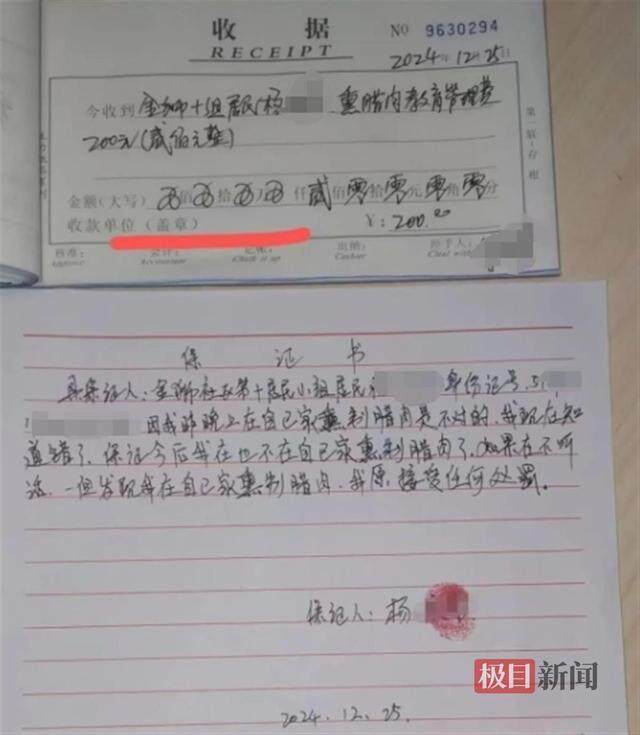 收据
RECEIPT
NO 9630294
2024年12月25日
今收到 金狮十组居民杨 熏腊肉教育管理费
200元(贰佰元整)
金额(大写) 仟贰佰零拾零元零角零分
收款单位(盖章) ¥:200.00
核准: 会计: 记帐: 出纳: 经手人:
Approve Accountant Chalk it up Cashier Deal with
第一联:存根
保证书
具保证人:金狮社区第十居民小组居民 身份证号:5
因我昨晚上在自己家熏制腊肉是不对的,我现在知
道错了,保证今后我在也不在自己家熏制腊肉了,如果在不听
话,一但发现我在自己家熏制腊肉,我原接受任何处罚。
保证人:杨
2024.12.25.
极目新闻